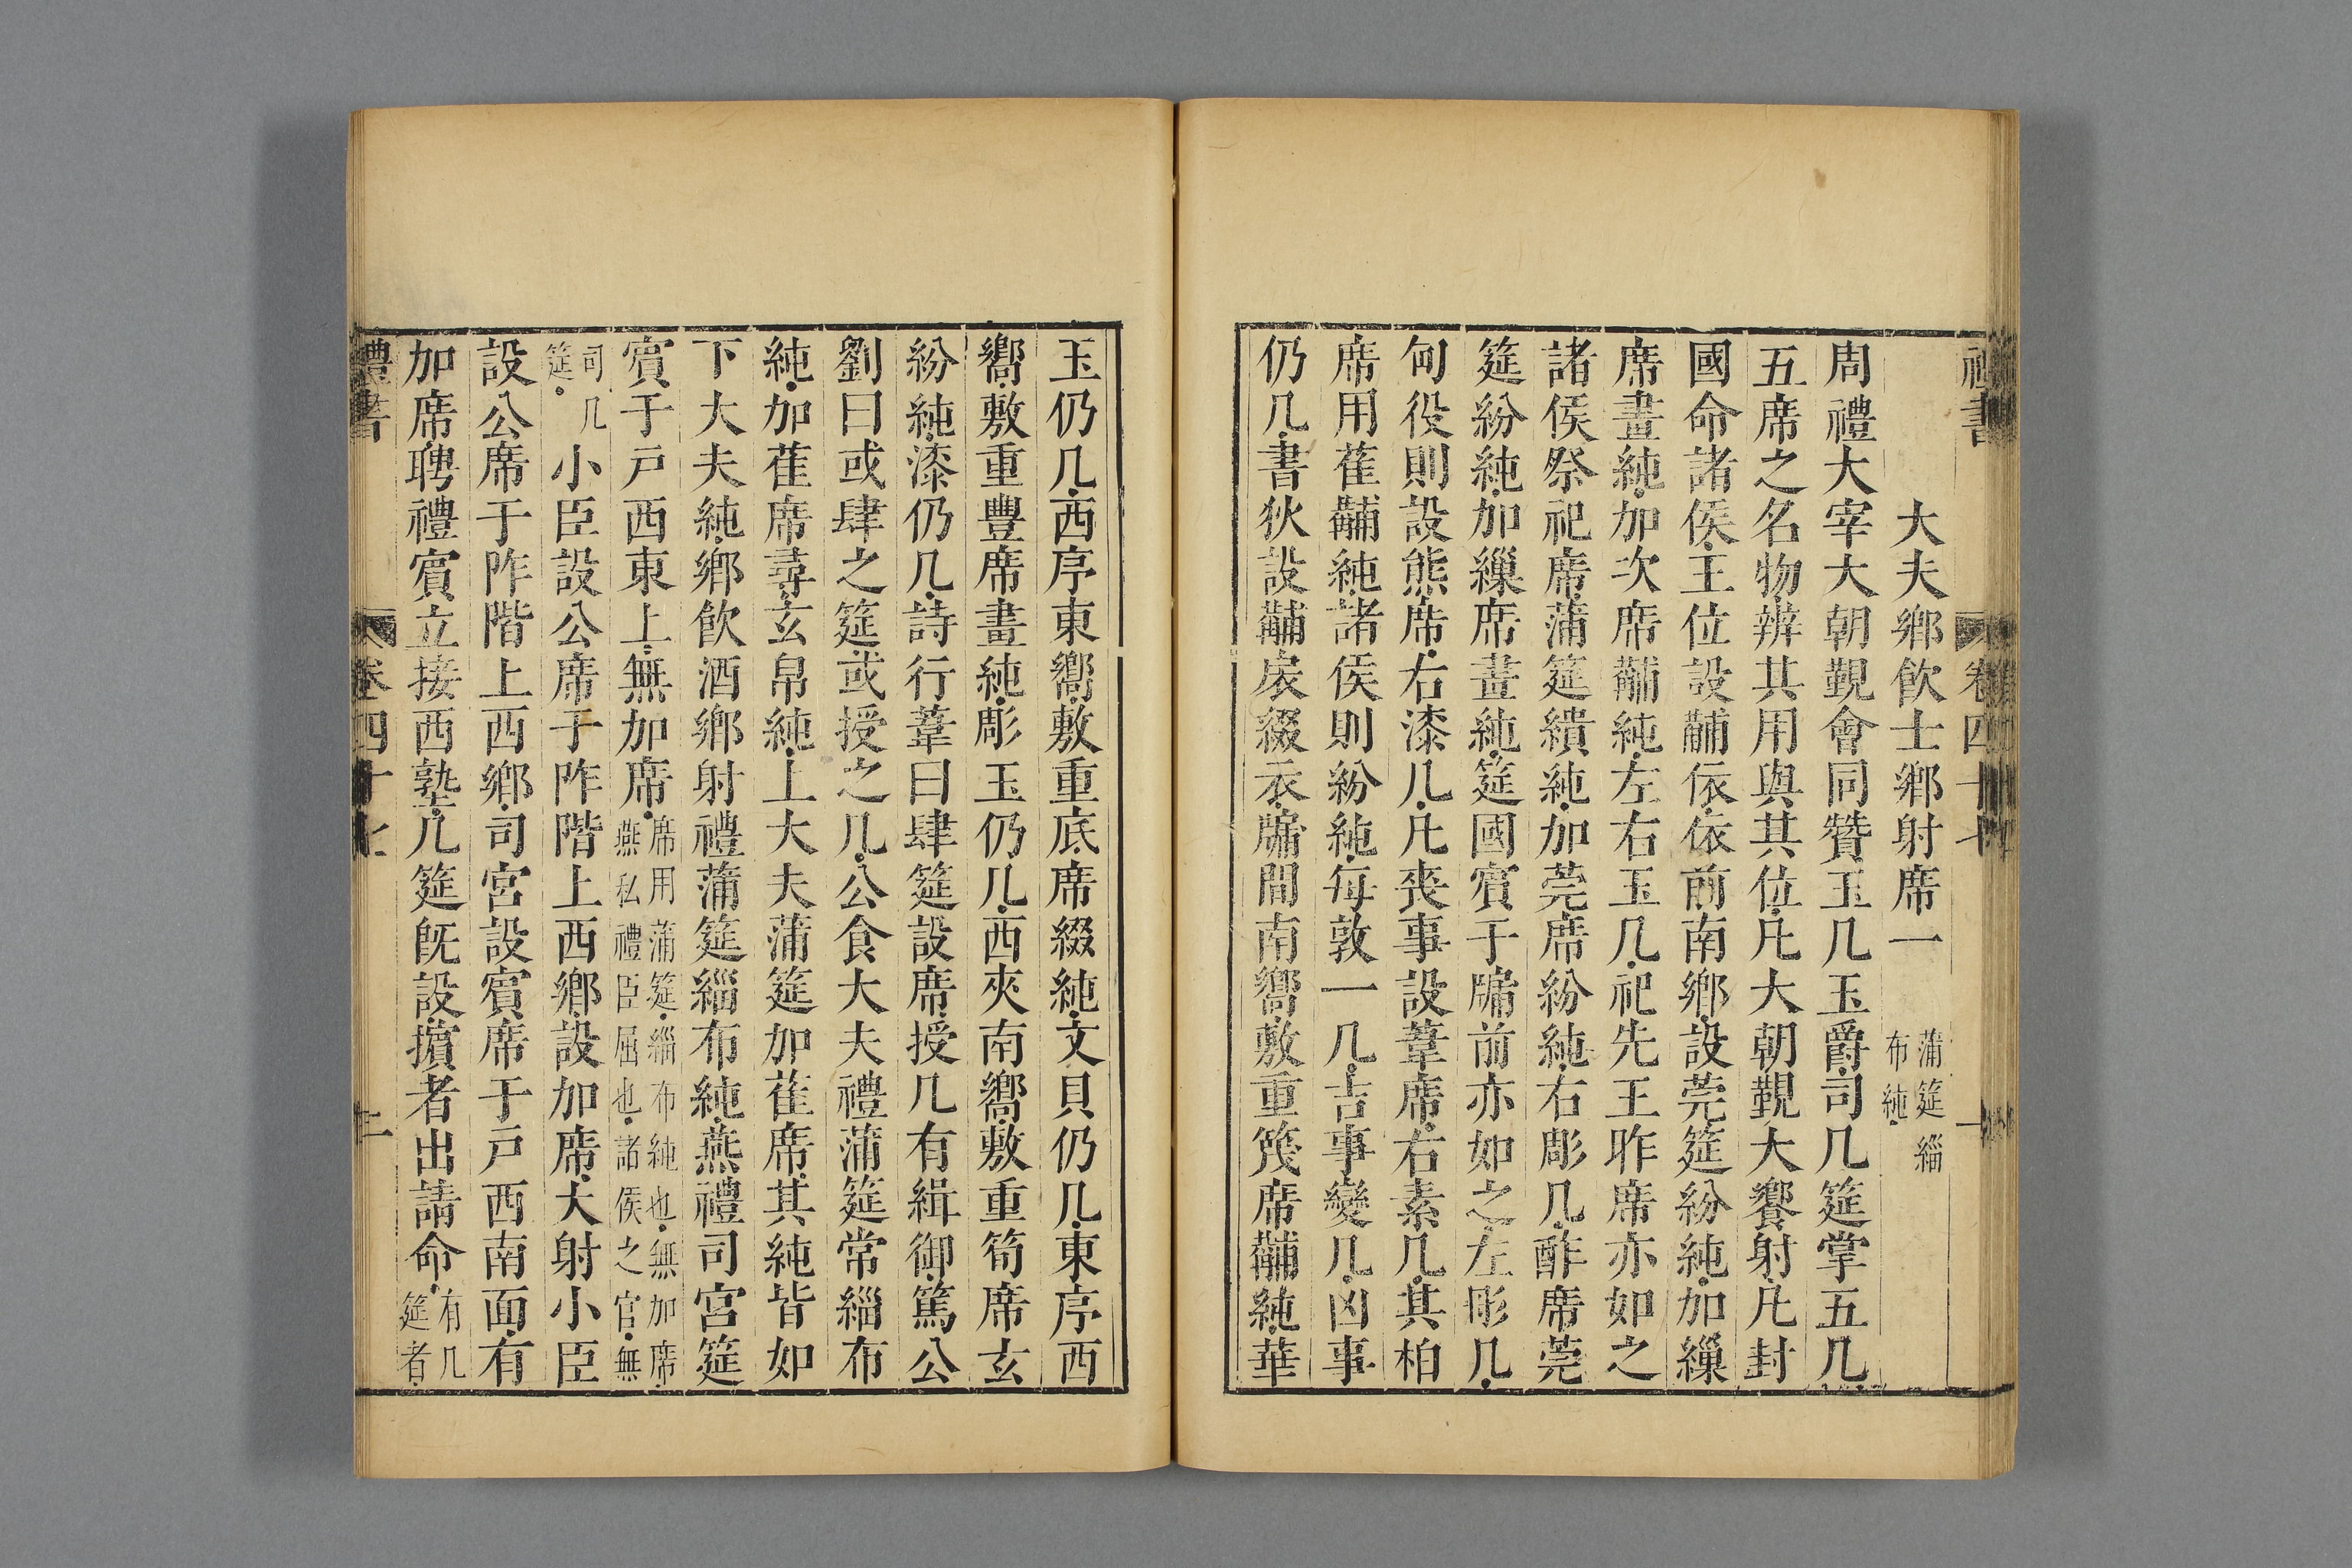 禮書 卷四十七 一
大夫鄉飲士鄉射席一 蒲筵緇布純
周禮大宰大朝覲會同贊玉几玉爵司几筵掌五几
五席之名物辨其用與其位凡大朝覲大饗射凡封
國命諸侯王位設黼依依前南鄉設莞筵紛純加繅
席畫純加次席黼純左右玉几祀先王昨席亦如之
諸侯祭祀席蒲筵繢純加莞席紛純右彫几酢席莞
筵紛純加繅席畫純筵國賓于牖前亦如之左彤几
甸役則設熊席右漆几凡喪事設葦席右素几其柏
席用萑黼純諸侯則紛純每敦一几吉事變几凶事
仍几書狄設黼扆綴衣牖間南嚮敷重篾席黼純華
玉仍几西序東嚮敷重底席綴純文貝仍几東序西
嚮敷重豐席畫純彫玉仍几西夾南嚮敷重筍席玄
紛純漆仍几詩行葦曰肆筵設席授几有緝御篤公
劉曰或肆之筵或授之几公食大夫禮蒲筵常緇布
純加萑席尋玄帛純上大夫蒲筵加萑席其純皆如
下大夫純鄉飲酒鄉射禮蒲筵緇布純燕禮司宮筵
賓于戶西東上無加席 席用蒲筵緇布純也無加席燕私禮臣屈也諸侯之官無
司几筵 小臣設公席于阼階上西鄉設加席大射小臣
設公席于阼階上西鄉司宮設賓席于戶西南面有
加席聘禮賓立接西塾几筵旣設擯者出請命 有几筵者
禮書 卷四十七 二